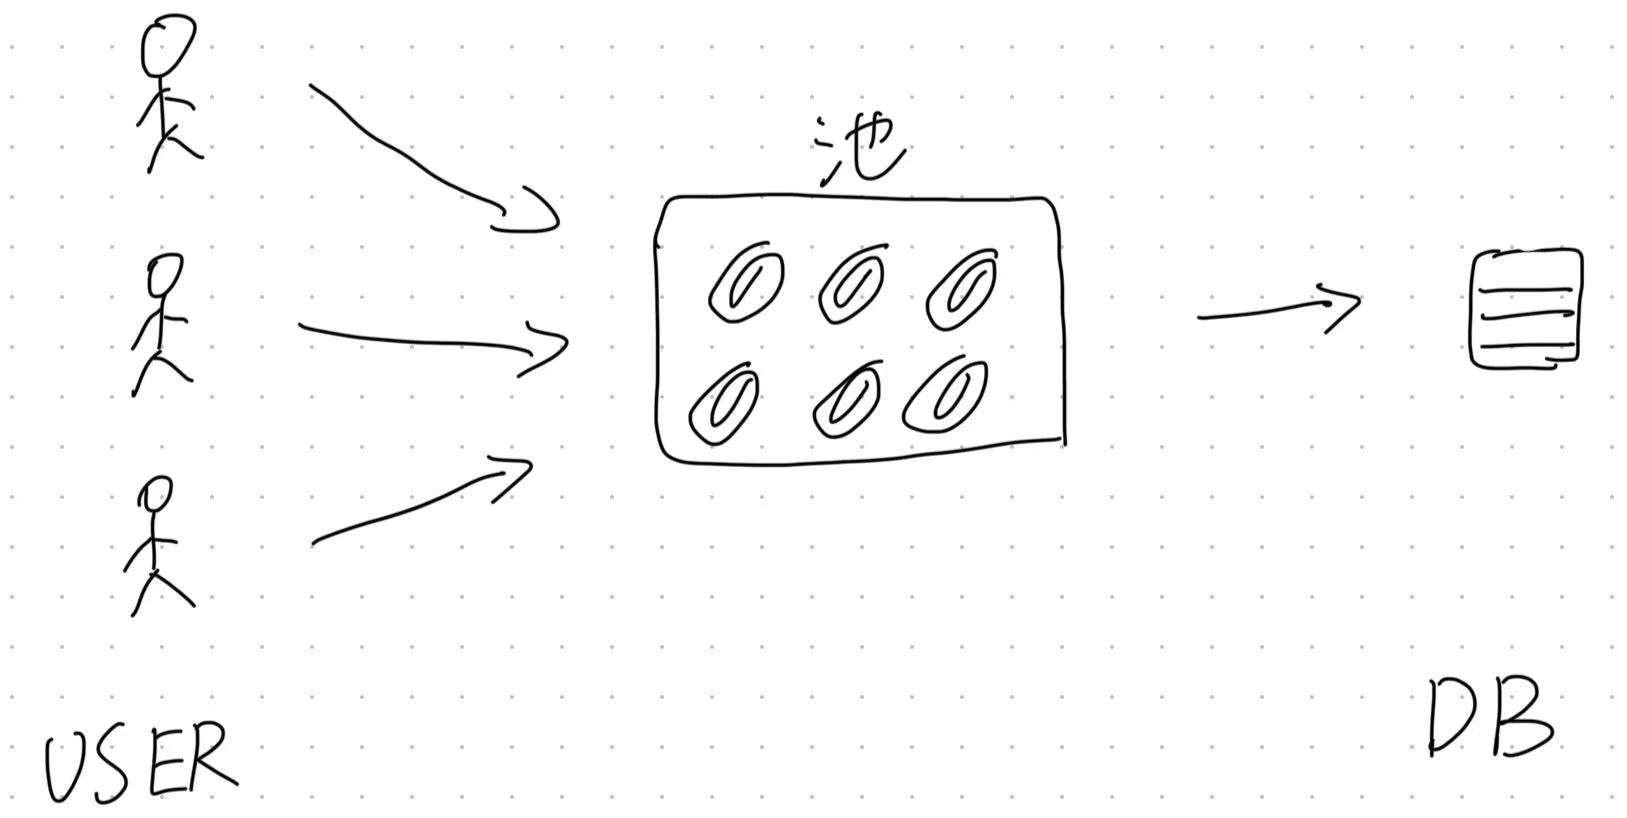 池
USER
DB